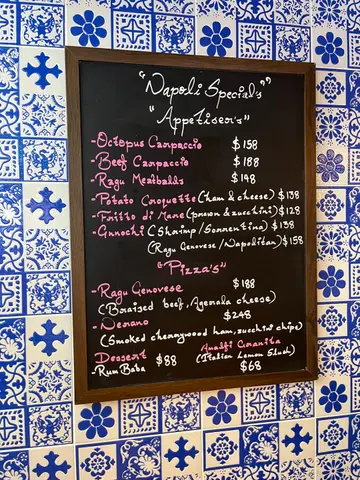 "Napoli Special's"
"Appetiser's"
-Octopus Carpaccio $158
-Beef Carpaccio $188
-Ragu Meatballs $148
-Potato Corquette (ham & cheese) $138
-Fritto di Mare (prawn & zucchini) $128
-Gnnochi (Shrimp/Sorrentina) $138
(Ragu Genovese/Napolitan) $158
"Pizza's"
-Ragu Genovese $188
(Braised beef, Agerola cheese)
-Nerano $248
(Smoked cherrywood ham, zucchini chips)
Dessert
-Rum Baba $88
Amalfi Granita
(Italian Lemon Slush)
$68